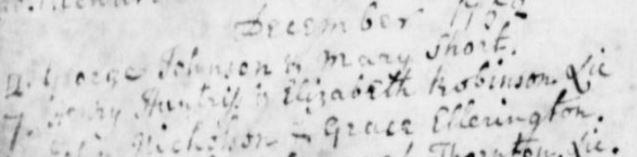 December
2. George Johnson & Mary Short.
7. Henry Huntriss & Elizabeth Robinson. Lic
Nicholson & Grace Ellerington.
Thornton. Lic.